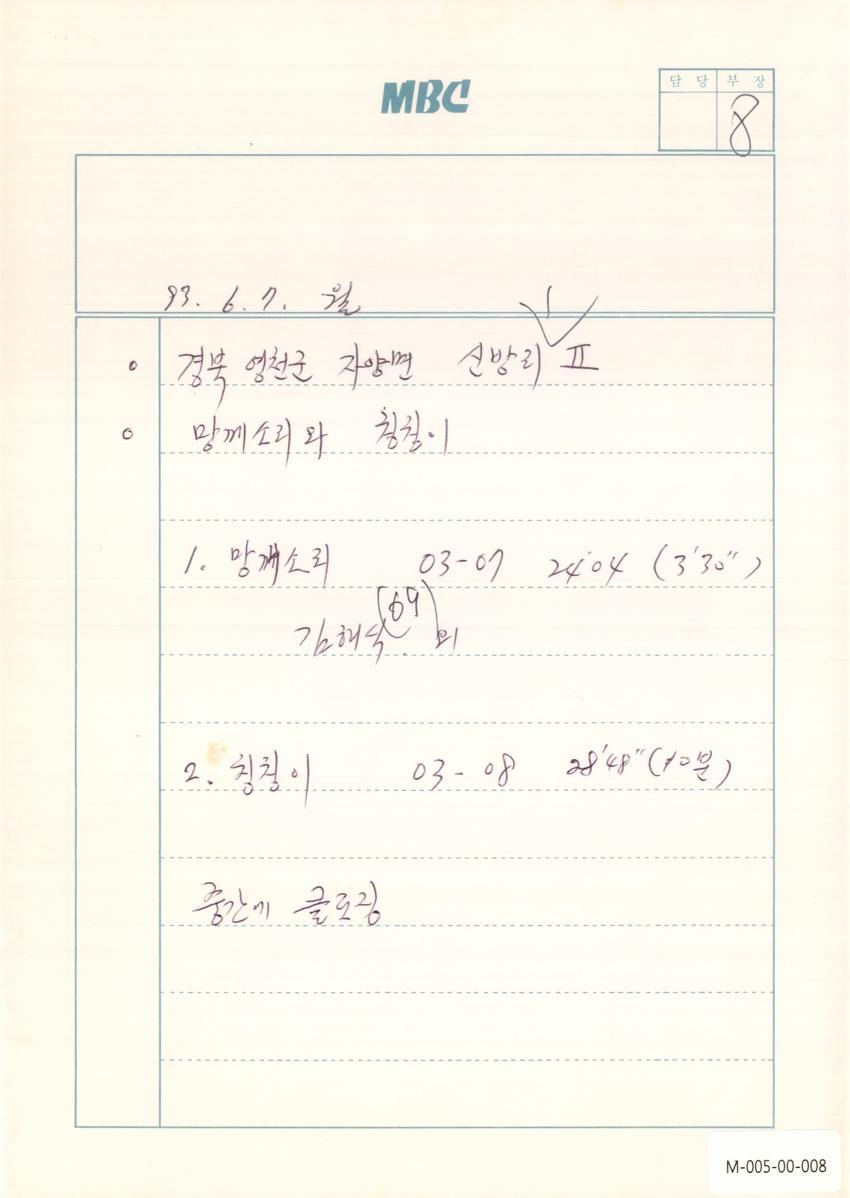 MBC
담 당 부 장
8
93. 6. 7. 월
○ 경북 영천군 자양면 신방리 Ⅱ
○ 망께소리와 칭칭이
1. 망께소리 03-07 24'04 (3'30")
김해숙(69) 외
2. 칭칭이 03-08 28'48" (10분)
중간에 클로징
M-005-00-008